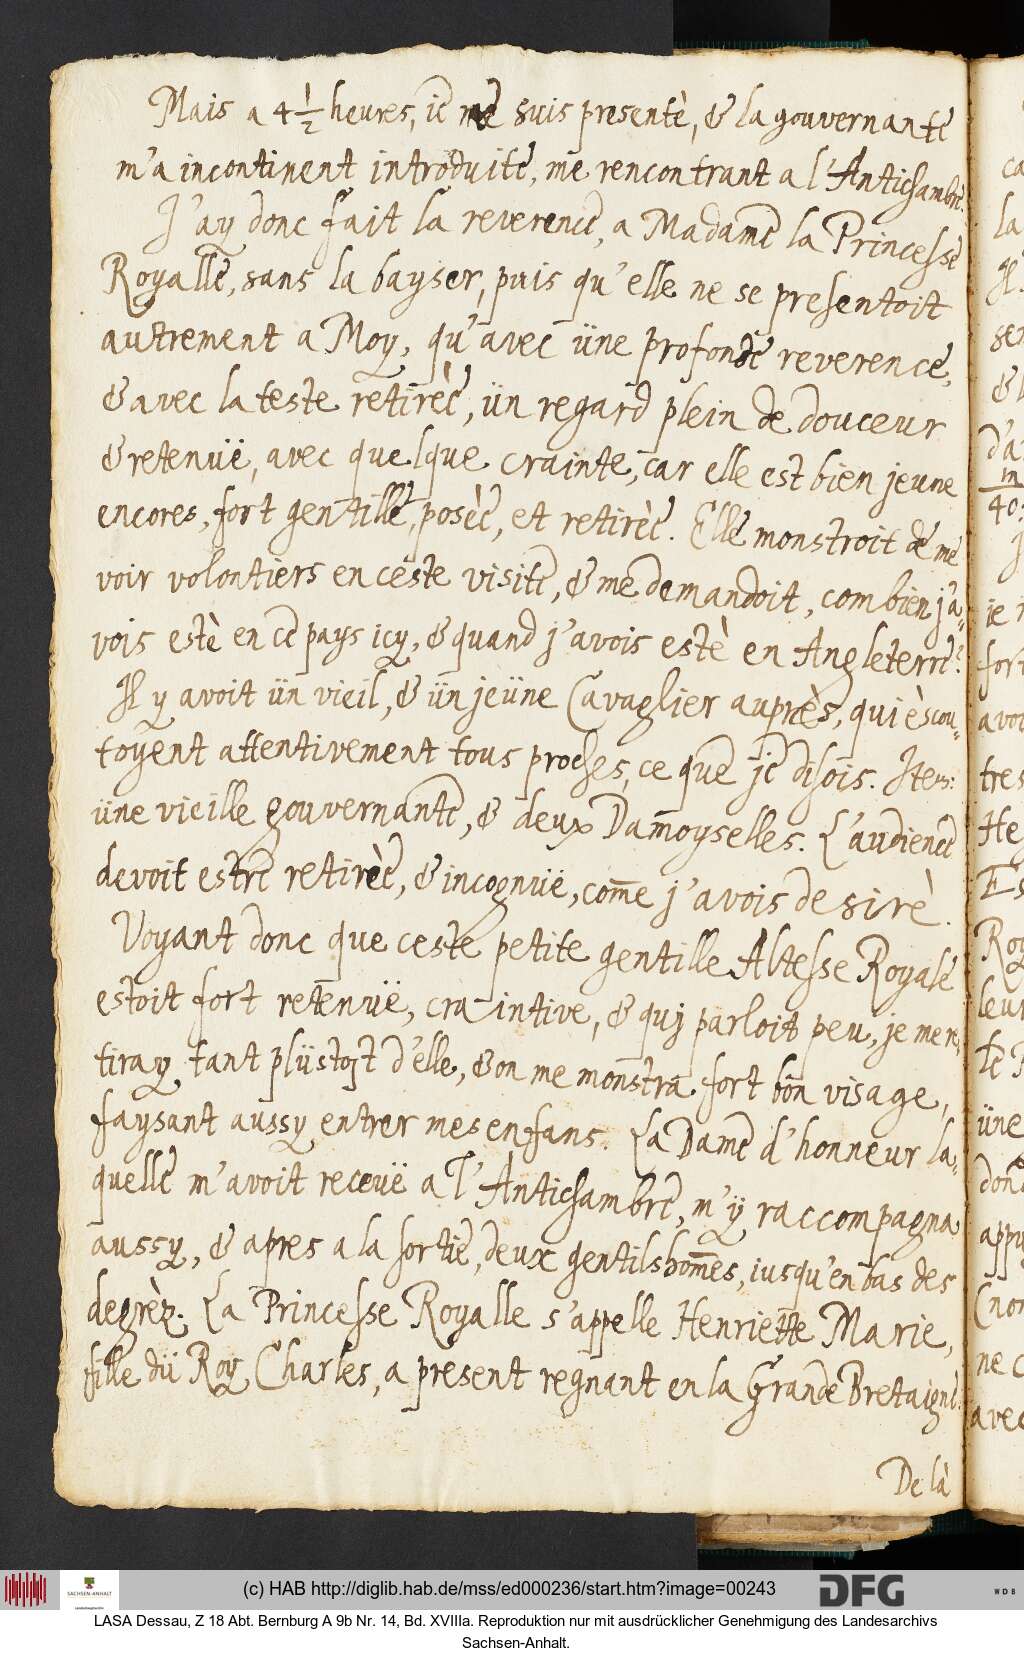 Mais a 4 1/2 heures, je me suis presentè, & la gouvernante
m'a incontinent introduite, me rencontrant a l'Antichambre.
J'ay donc fait la reverence, a Madame la Princesse
Royalle, sans la bayser, puis qu'elle ne se presentoit
autrement a Moy, qu'avec üne profonde reverence,
& avec la teste retirèe, ün regard plein de douceur
& retenuë, avec quelque crainte, car elle est bien jeune
encores, fort gentille, posèe, et retirèe. Elle monstroit de me
voir volontiers en ceste visite, & me demandoit, combien j'a¬
vois estè en ce pays icy, & quand j'avois estè en Angleterre?
Il y avoit ün vieil, & ün jeüne Cavaglier auprès, qui èscou¬
toyent attentivement tous proches, ce que je disois. Item:
üne vieille gouvernante, & deux Damoyselles. L'audience
devoit estre retirèe, & incognuë, come j'avois desirè.
Voyant donc que ceste petite gentille Altesse Royale
estoit fort retenuë, craintive, & quj parloit peu, je me re¬
tiray tant plüstost d'elle, & on me monstra fort bon visage,
faysant aussy entrer mes enfans. La Dame d'honneur la¬
quelle m'avoit receuë a l'Antichambre, m'ÿ raccompagna
aussy, & apres a la sortie, deux gentilshomes, jusqu'en bas des
degrèz. La Princesse Royalle s'appelle Henriette Marie,
fille dü Roy Charles, a present regnant en la Grande Bretaigne.
De là
ca
la
ser
& l
d'a
m
40:
je
fort
avoi
tres
He
Es
Roy
leur
le
üne
donc
appu
(non
ne c
avec
(c) HAB http://diglib.hab.de/mss/ed000236/start.htm?image=00243
SACHSEN-ANHALT
DFG
WDB
LASA Dessau, Z 18 Abt. Bernburg A 9b Nr. 14, Bd. XVIIIa. Reproduktion nur mit ausdrücklicher Genehmigung des Landesarchivs
Sachsen-Anhalt.